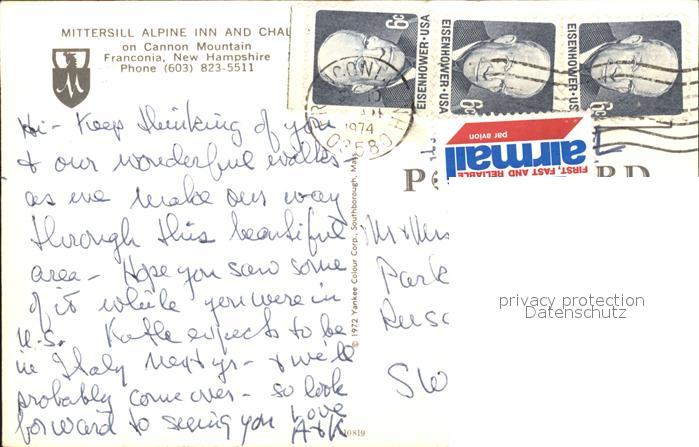 MITTERSILL ALPINE INN AND CHAL
on Cannon Mountain
Franconia, New Hampshire
Phone (603) 823-5511
M
6c
EISENHOWER·USA
6c
EISENHOWER·USA
6c
EISENHOWER·USA
FRANCONIA
1974
03580
airmail
par avion
FIRST, FAST AND RELIABLE
PO RD
Hi - Keep thinking of you
& our wonderful walks -
as we make our way
through this beautiful
area - Hope you saw some
of it while you were in
U.S. Kathe expects to be
in Italy next yr - & we'll
probably come over - so look
forward to seeing you Love
A&K
© 1972 Yankee Colour Corp., Southborough, Mass.
10819
Mr & Mrs
Park
Rusc
Sw
privacy protection
Datenschutz